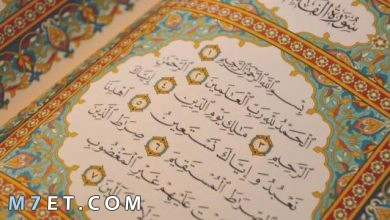 سُورَةُ الْفَا
بِسْمِ اللَّهِ الرَّحْمَٰنِ الرَّحِيمِ ١
الْحَمْدُ لِلَّهِ رَبِّ الْعَٰلَمِينَ ٢ الرَّحْمَٰنِ
الرَّحِيمِ ٣ مَٰلِكِ يَوْمِ الدِّينِ ٤ إِيَّاكَ
نَعْبُدُ وَإِيَّاكَ نَسْتَعِينُ ٥ اهْدِنَا
الصِّرَٰطَ الْمُسْتَقِيمَ ٦ صِرَٰطَ الَّذِينَ
عَلَيْهِمْ غَيْرِ الْمَغْضُوبِ
٧
M7ET.COM